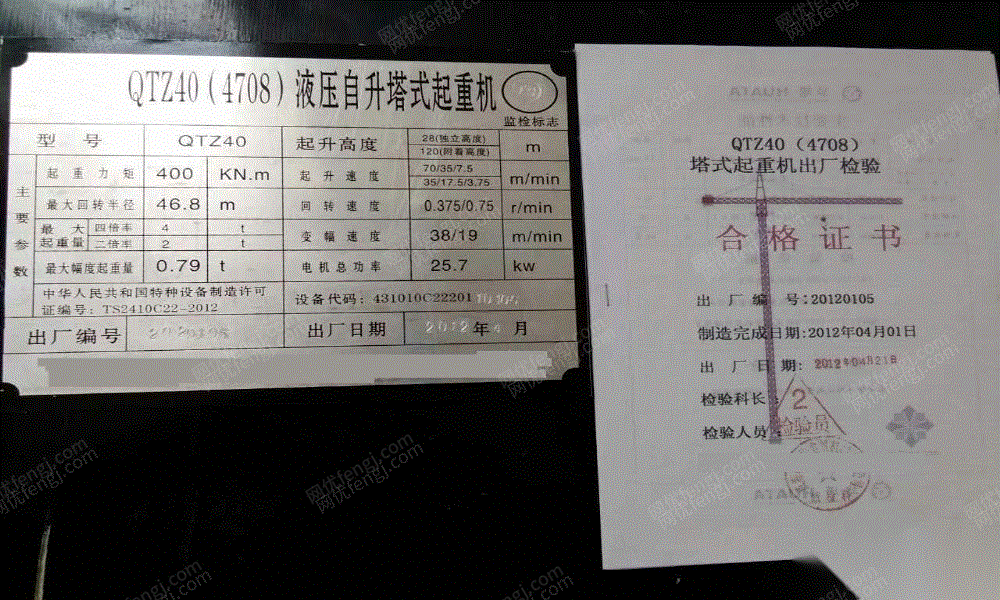 QTZ40(4708)液压自升塔式起重机
监检标志
型号 QTZ40 起升高度 28(独立高度) 120(附着高度) m
主要参数
起重力矩 400 KN.m 起升速度 70/35/7.5 35/17.5/3.75 m/min
最大回转半径 46.8 m 回转速度 0.375/0.75 r/min
最大起重量 四倍率 4 t 二倍率 2 t 变幅速度 38/19 m/min
最大幅度起重量 0.79 t 电机总功率 25.7 kw
中华人民共和国特种设备制造许可
证编号:TS2410C22-2012
设备代码:431010C22201
出厂编号 2020105 出厂日期 2012年4月
HUATA
QTZ40(4708)
塔式起重机出厂检验
合格证书
出厂编号:20120105
制造完成日期:2012年04月01日
出厂日期:2012年04月21日
检验科长:
2
检验人员:
检验员
HUATA
网优fengj.com